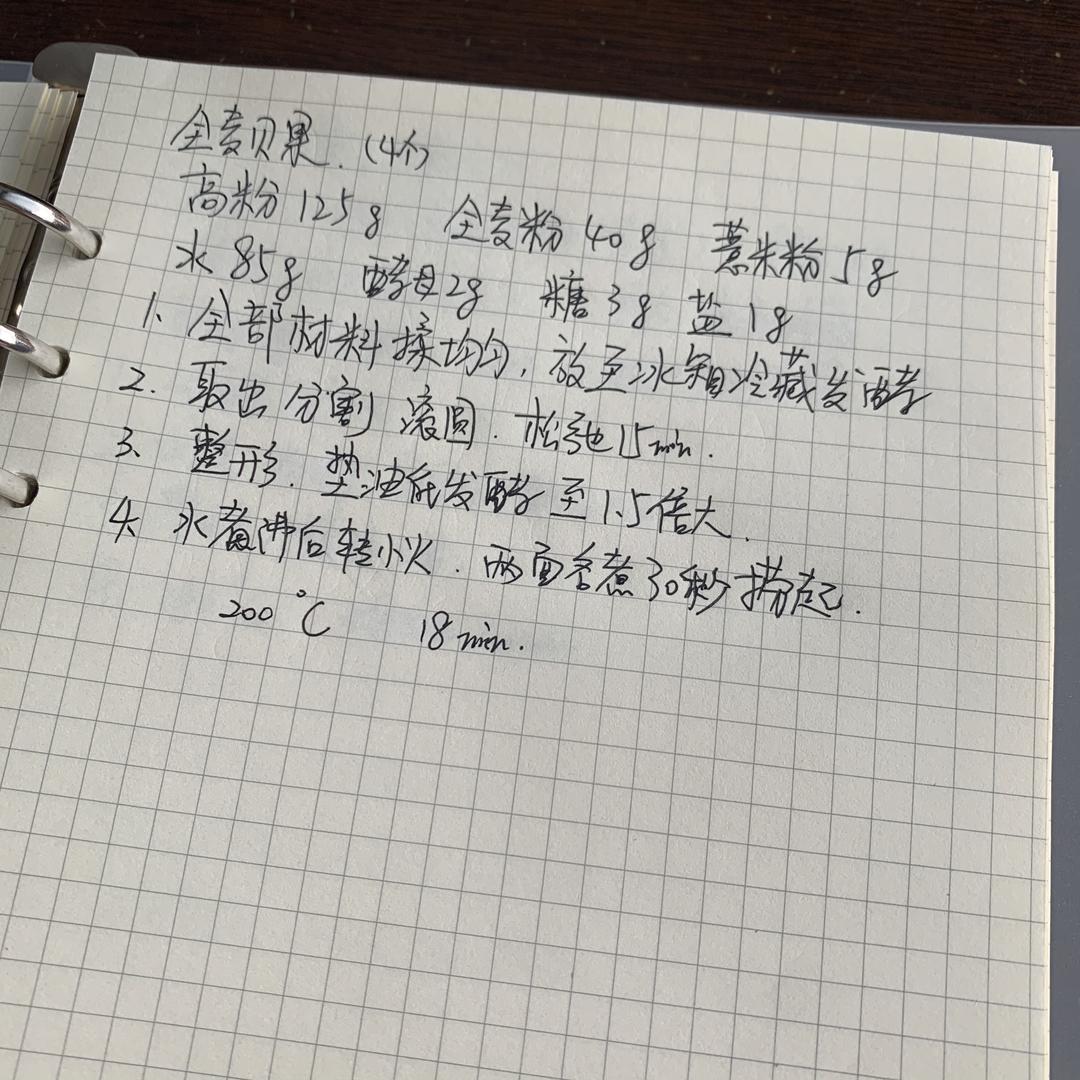 全麦贝果.(4个)
高粉125g 全麦粉40g 薏米粉5g
水85g 酵母2g 糖3g 盐1g
1. 全部材料揉均匀,放至冰箱冷藏发酵
2. 取出分割滚圆.松弛15min.
3. 整形.垫油纸发酵至1.5倍大.
4. 水煮沸后转小火.两面各煮30秒捞起.
200℃ 18min.